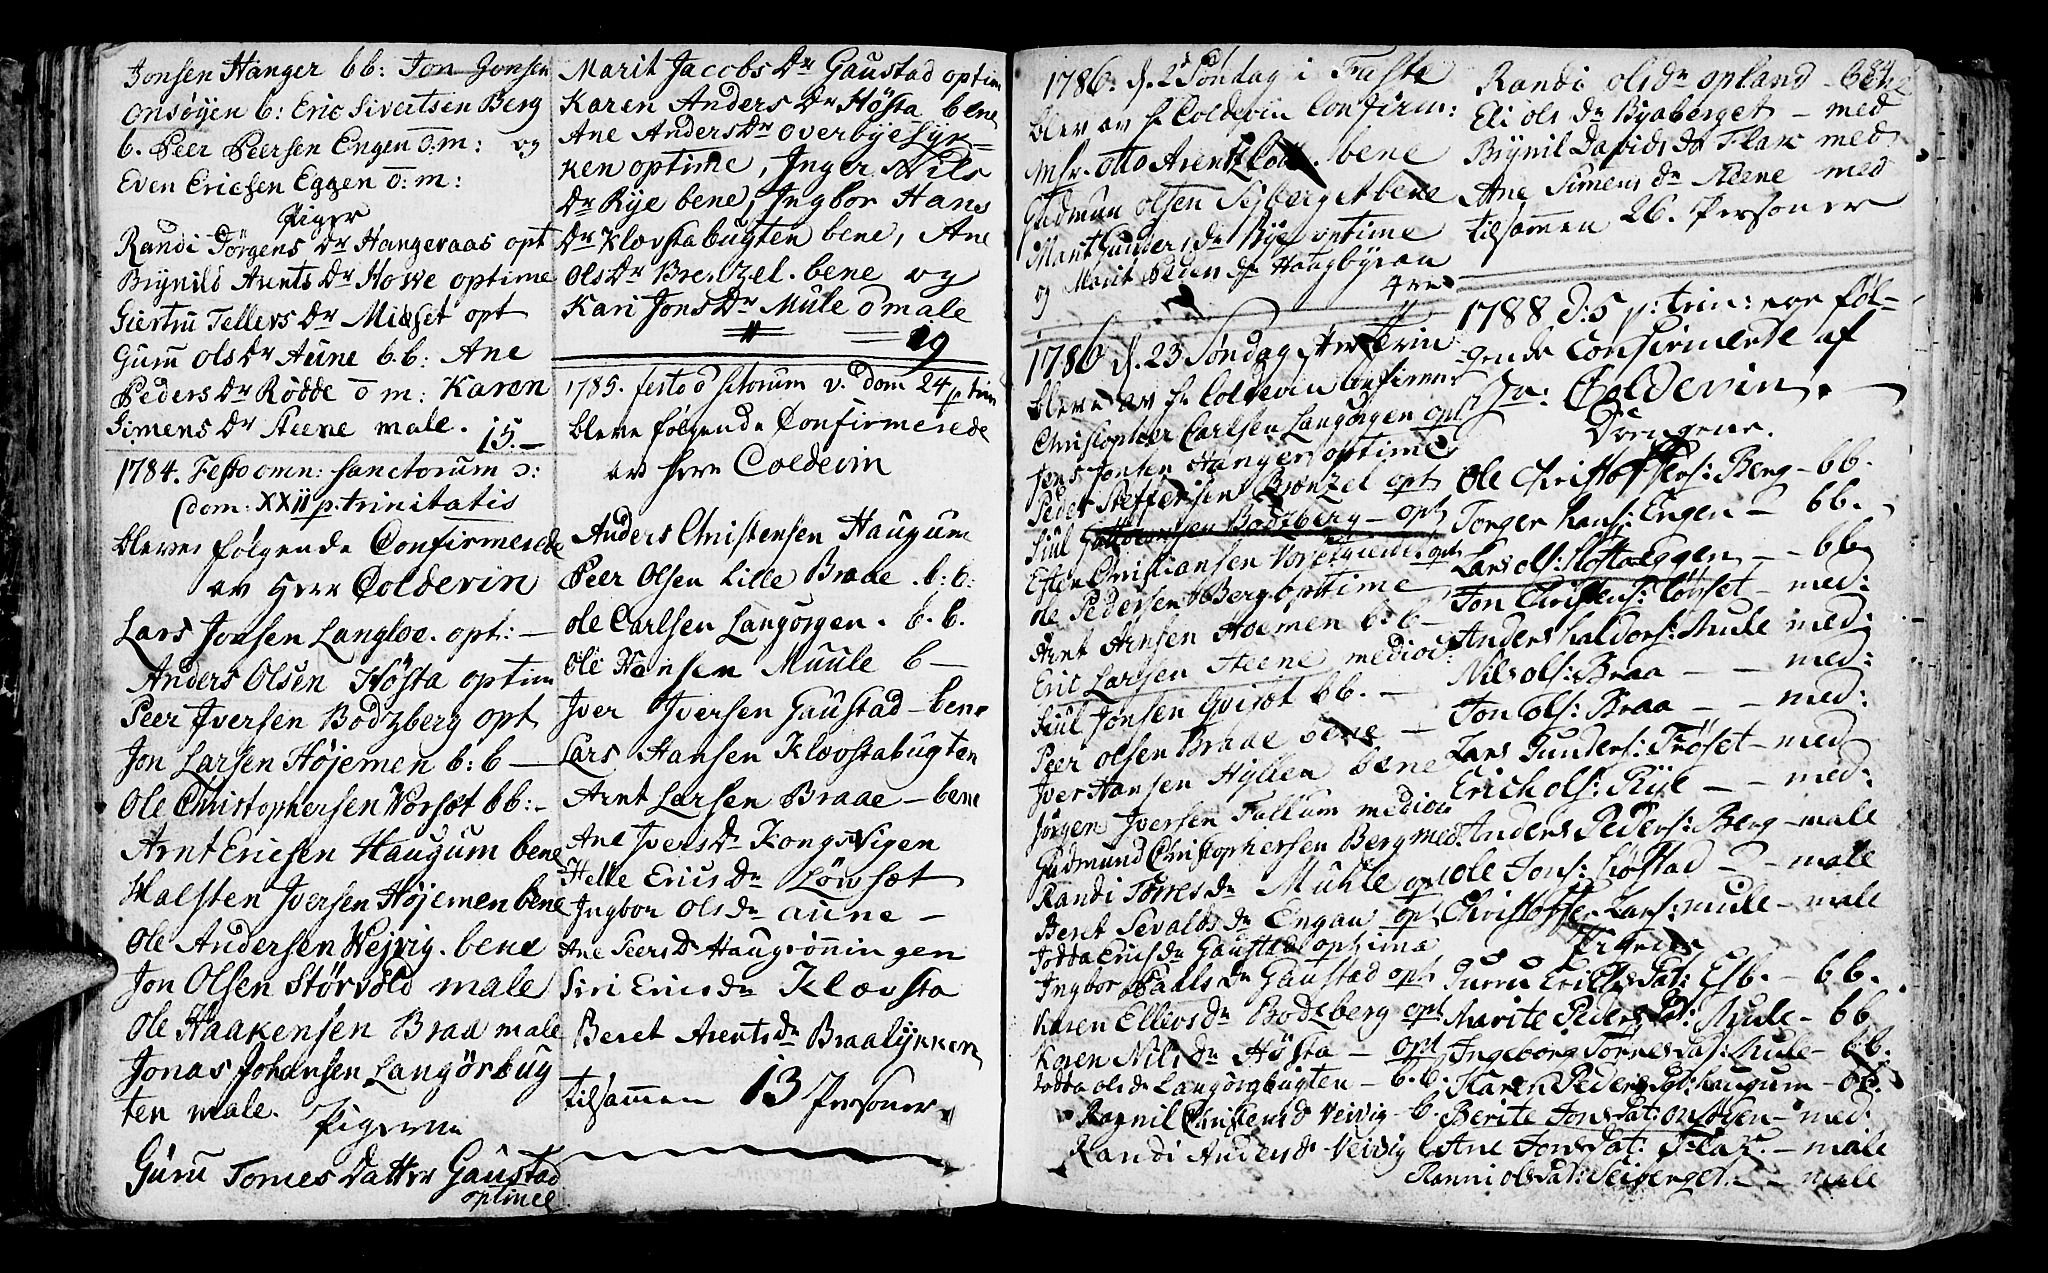 Jonsen Hanger bb: Jon Jonsen
Onsöyen b: Eric Sivertsen Berg
b. Peer Peersen Engen o: m: og
Even Ericsen Eggen o: m:
Piger
Randi Jörgens Dr Hangeraas opt
Brynild Arents Dr Howe optime
Giertru Tellevs Dr Midset opt
Guru Ols Dr Aune b.b: Ane
Peders Dr Rödde o m: Karen
Simens Dr Steene male. 15.—
1784. Festo omn: Sanctorum ɔ:
(dom: XXII p. trinitatis
bleve følgende Confirmerede
av Herr Coldevin
Lars Jonsen Langloe. opt: —
Anders Olsen Hösta optim
Peer Jversen Bodzberg opt
Jon Larsen Höjemen b: b —
Ole Christophersen Vorset bb: -
Arnt Ericsen Haugum bene
Halsten Jversen Höjemen bene
Ole Andersen Wejvig. bene
Jon Olsen Störvold male
Ole Haakensen Braa male
Jonas Johansen Langörbug
ten male.
Pigerne
Guru Tornes Datter Gaustad
optime
Marit Jacobs Dr Gaustad optim
Karen Anders Dr Hösta bene
Ane Anders Dr Overbye Lyk-
ken optime, Jnger Nils
Dr Rye bene, Jngbor Hans
Dr Klovstabugten bene, Ane
Ols Dr Brentzel. bene og
Kari Jons Dr Mule o male
19
1785. festo o sctorum v. dom 24 p trin
bleve følgende Confirmerede
av Herr Coldevin
Anders Christensen Haugum
Peer Olsen Lille Braae. b: b:
Ole Carlsen Langörgen. b. b.
Ole Hansen Muule b —
Jver Jversen Gaustad — bene
Lars Hansen Klovstabugten
Arnt Larsen Braae — bene
Ane Jvers Dr Kongsvigen
Helle Erics Dr Löwset
Jngbor Ols Dr Aune —
Ane Peers Dr Haugrönningen
Siri Erics Dr Klovsta
Beret Arents Dr Braalykken
tilsammen 13 Personer
1786. d. 2 Söndag i Faste
blev av Hr Coldevin Confirm:
Msr. Otto Arentz bene
Gudmun Olsen Sejberget bene
Marit Gunders Dr Rye optime
og Marit Peders Dr Haugbyran
4re
1786 d. 23 Söndag efter Trin
bleve av Hr Coldevin Confirme
Christopher Carlsen Langörgen opt
Jens Jonsen Hanger optime
Peder Steffensen Brenzel opt
Siul Bodzberg — opt
Christiansen opt
Ole Pedersen Berg optime
Arnt Arnsen Hoemen b. b —
Eric Larsen Steene medioc:
Siul Jonsen Qvisset bb. —
Peer Olsen Braae bene —
Jver Hansen Hyllen bene
Jörgen Jversen Fallum medioc
Gudmund Christophersen Berg med.
Randi Torres Dr Muhle opt
Beret Sevalds Dr Engan opt
Jodda Erics Dr Gaustad optima
Jngbor Paals Dr Gaustad opt
Karen Ellevs Dr Bodzberg opt
Karen Nils Dr Hösta — opt
Jodda Ols Dr Langörgbugten — b. b.
Ragnil Christens Dr Veivig — b.
Randi Anders Dr Veivig b
Randi Ols Dr Opland — bene
Eli Ols Dr Byaberget — med
Brynil Davids Dr Flak med
Ane Simens Dr Steene med
tilsammen 26. Personer
1788 D: 5 p: trin: ere föl-
gende Confirmerte af
Hr: Coldevin.
Drengene.
Ole Christoffers: Berg — bb.
Torger Hans: Engen — bb.
Lars Ols: Hostaeggen — — bb
Jon Christens: Lövset — med:
Anders Haldors: Mule med:
Nils Ols: Braa — — med:
Jon Ols: Braa — — med:
Lars Gunders: Fröset — med
Erich Ols: Rye — — med:
Anders Peders: Berg — male
Ole Jons: Fröstad — — male
Christoffer Lars: Mule — male
Pigerne
Guru Erichs Dat: Esb. — bb.
Marite Peders Dat: Mule — bb
Ingeborg Tornes Dat: Mule — bb.
Karen Peders Dat: Haugum — b.
Berite Jons Dat: Onsöien — med:
Ane Jons Dat: Flak. — male
Ranni Ols Dat: Seiberget. — male